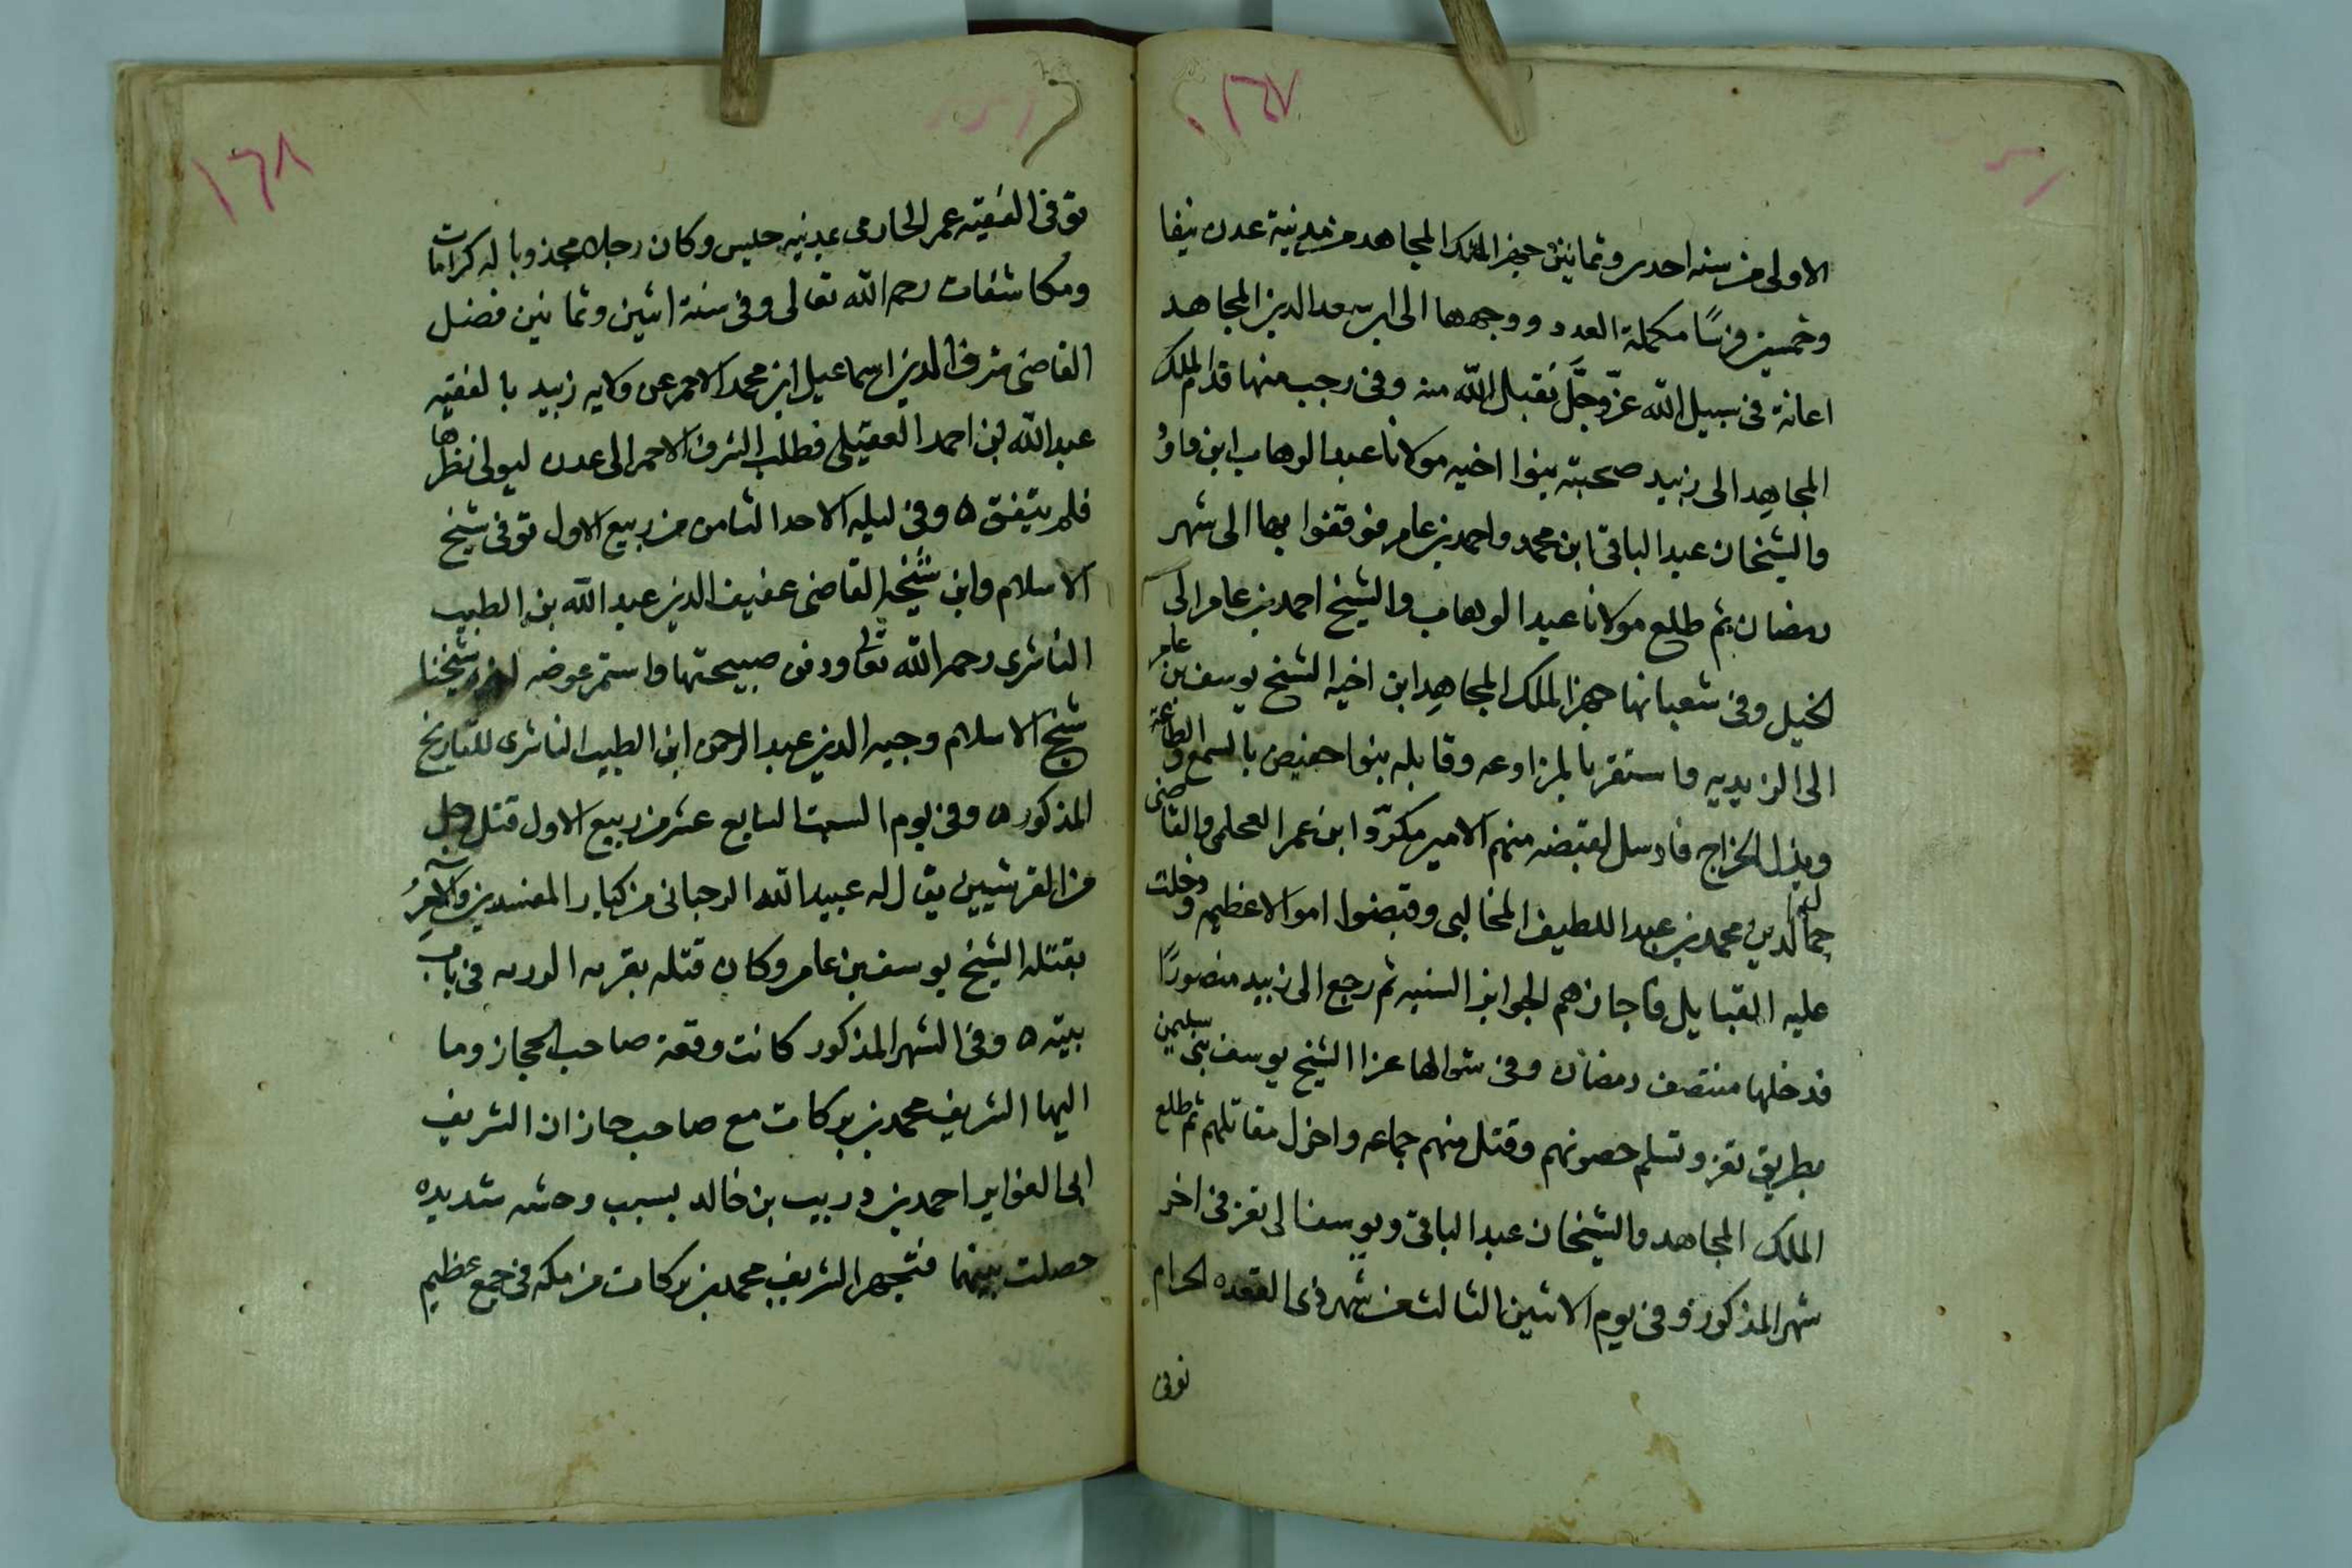 ١٦٧
الاولى من سنه احدى وثمانين جهز الملك المجاهد من مدينة عدن نيفا
وخمسين فرسًا مكملة العدد ووجهها الى ابن سعد الدين المجاهد
اعانة فى سبيل الله عزّ وجلّ تقبل الله منه وفى رجب منها قدم الملك
المجاهِد الى زبيد صحبته بنوا اخيه مولانا عبد الوهاب ابن داوُد
والشيخان عبد الباقى ابن محمد واحمد بن عامر فوقفوا بها الى شهر
رمضان ثم طلع مولانا عبد الوهاب والشيخ احمد بن عامر الى
الخيل وفى شعبانها جهز الملك المجاهِد ابن اخيه الشيخ يوسف بن عامر
الى الزيديه فاستقر بالمزاوعه وقابله بنوا حفيص بالسمع والطاعة
وبذل الخراج فارسل لقبضه منهم الامير مكرّد ابن عمر العحلمى والقاضى
جمال الدين محمد بن عبد اللطيف المخالبى وقبضوا اموالا عظيمه ودخلت
عليه القبايل فاجازهم الجوايز السنيه ثم رجع الى زبيد منصورًا
فدخلها منتصف رمضان وفى شوالها غزا الشيخ يوسف بنى سليمن
بطريق تعز وتسلم حصونهم وقتل منهم جماعه واخرب مقاتلهم ثم طلع
الملك المجاهد والشيخان عبد الباقى ويوسف الى تعز فى اخر
شهر المذكور وفى يوم الاثنين الثالث من شهر ذى القعده الحرام
توفى
١٦٨
توفى الفقيه عمر الحادمى بمدينه حيس وكان رجلا مجذوبا له كرامات
ومُكاشفات رحمه الله تعالى وفى سنة اثنين وثمانين فصل
القاضى شرف الدين اسماعيل ابن محمد الاحمر عن ولايه زبيد بالفقيه
عبد الله بن احمد العقيلى فطلب الشرف الاحمر الى عدن ليولى نظرها
فلم يتفق ه وفى ليله الاحد الثامن من ربيع الاول توفى شيخ
الاسلام وابن شيخه القاضى عفيف الدين عبد الله بن الطيب
الناشرى رحمه الله تعالى ودفن صبيحتها واستمر عوضه اخوه شيخنا
شيخ الاسلام وجيه الدين عبد الرحمن ابن الطيب الناشرى للتاريخ
المذكور ه وفى يوم السبت السابع عشر من ربيع الاول قتل رجل
من القرشيين يقال له عبيد الله الرحبانى من كبار المفسدين والآمر
بقتله الشيخ يوسف بن عامر وكان قتله بقريه الوريه فى باب
بيته ه وفى الشهر المذكور كانت وقعة صاحب الحجاز وما
اليها الشريف محمد بن بركات مع صاحب جازان الشريف
ابى الغواير احمد بن دريب بن خالد بسبب وحشه شديده
حصلت بينهما فتجهز الشريف محمد بن بركات من مكه فى جمع عظيم